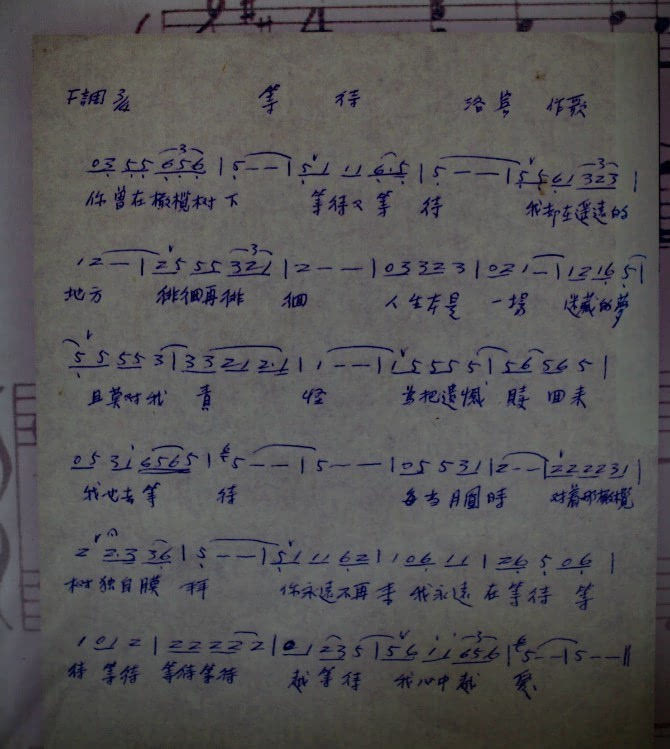 F調 4/4 等待 洛賓 作歌
03 55 656 | 5 — — | 51 11 6·5 | 5 — — | 5561 323 |
你曾在橄欖树下 等待又等待 我却在遥遠的
12 — | 25 55 321 | 2 — — | 03323 | 021 — | 12165 |
地方 徘徊再徘徊 人生本是一場 迷藏的夢
5 5 55 3 | 332121 2·1 | 1 — — | 15555 | 56565 |
且莫对我責怪 為把遺憾贖回来
05 31 6565 | 5 — — | 5 — — | 05531 | 2 — — | 222231 |
我也去等待 每当月圓時 对着那橄欖
2 2·3 36 | 5 — — | 51 11 62 | 106 11 | 26 5 06 |
树独自膜拜 你永遠不再来 我永遠在等待 等
1 01 2 | 22222 | 01 235 | 56 11 656 | 5 — — | 5 — — ||
待 等待 等待等待 越等待 我心中越愛